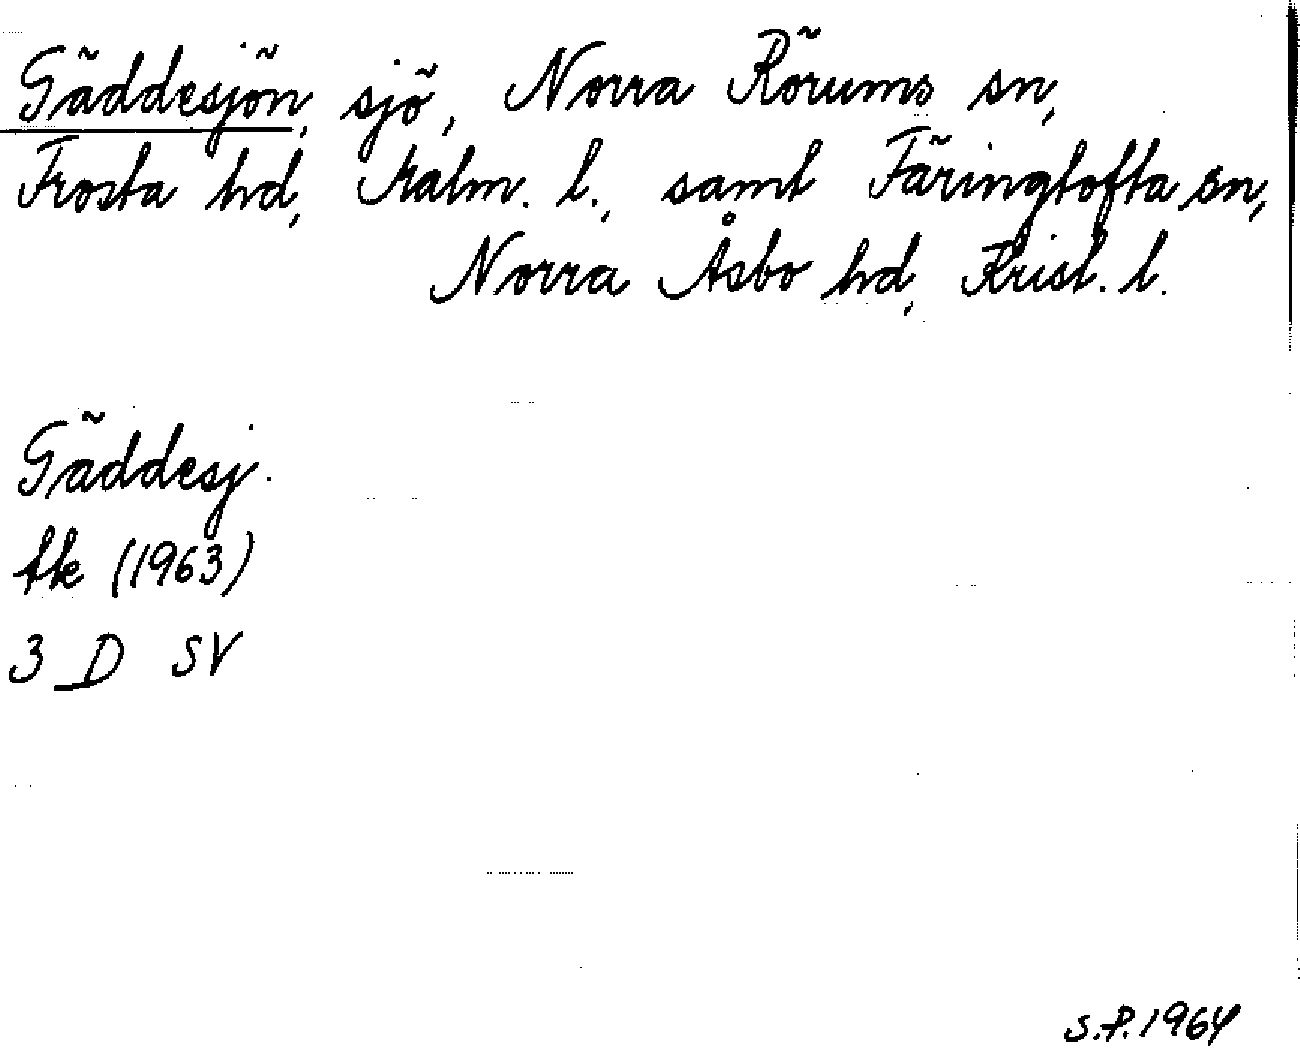 Gäddesjön, sjö, Norra Rörums sn,
Frosta hd, Malm. l., samt Färingtofta sn,
Norra Åsbo hd, Krist. l.
Gäddesj.
fk (1963)
3 D SV
S.P. 1964